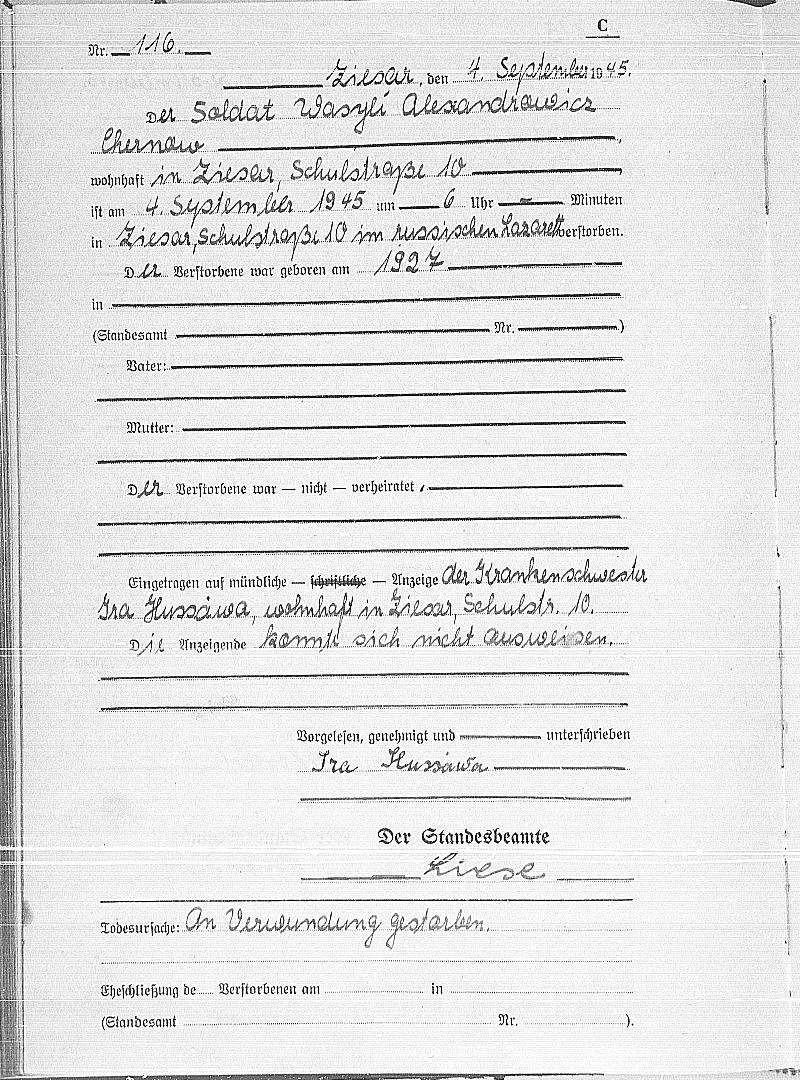 C
Nr. 116.
Ziesar, den 4. September 1945.
Der Soldat Wasyli Alexandrowicz
Chernow
wohnhaft in Ziesar, Schulstraße 10
ist am 4. September 1945 um 6 Uhr — Minuten
in Ziesar, Schulstraße 10 im russischen Lazarett verstorben.
Der Verstorbene war geboren am 1927
in
(Standesamt Nr. )
Vater:
Mutter:
Der Verstorbene war — nicht — verheiratet.
Eingetragen auf mündliche — schriftliche — Anzeige der Krankenschwester
Ira Hussáwa, wohnhaft in Ziesar, Schulstr. 10.
Die Anzeigende konnte sich nicht ausweisen.
Vorgelesen, genehmigt und unterschrieben
Ira Hussáwa
Der Standesbeamte
Liese
Todesursache: An Verwundung gestorben.
Eheschließung de Verstorbenen am in
(Standesamt Nr. ).